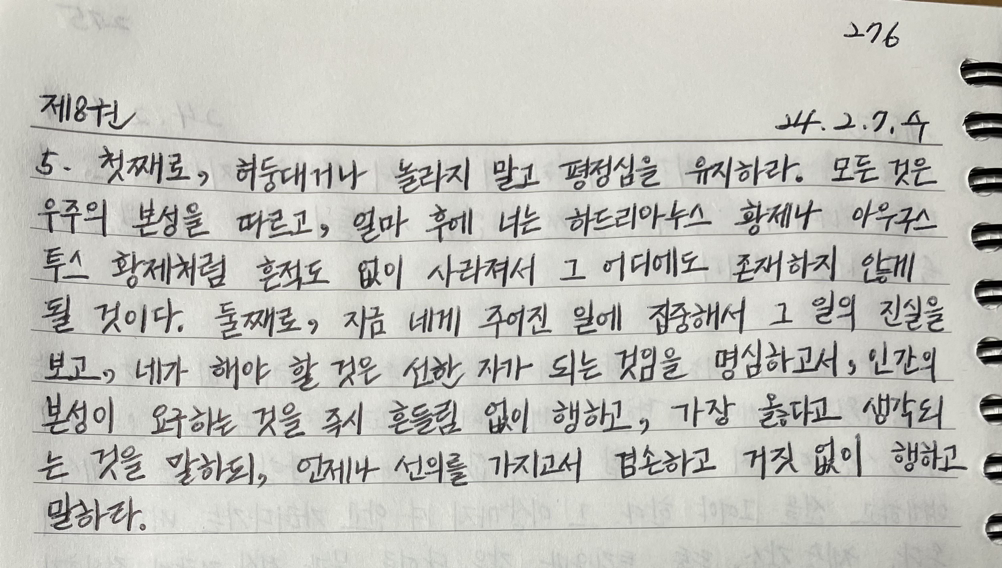 276
제8권 24.2.7.수
5. 첫째로, 허둥대거나 놀라지 말고 평정심을 유지하라. 모든 것은
우주의 본성을 따르고, 얼마 후에 너는 하드리아누스 황제나 아우구스
투스 황제처럼 흔적도 없이 사라져서 그 어디에도 존재하지 않게
될 것이다. 둘째로, 지금 네게 주어진 일에 집중해서 그 일의 진실을
보고, 네가 해야 할 것은 선한 자가 되는 것임을 명심하고서, 인간의
본성이 요구하는 것을 즉시 흔들림 없이 행하고, 가장 옳다고 생각되
는 것을 말하되, 언제나 선의를 가지고서 겸손하고 거짓 없이 행하고
말하라.